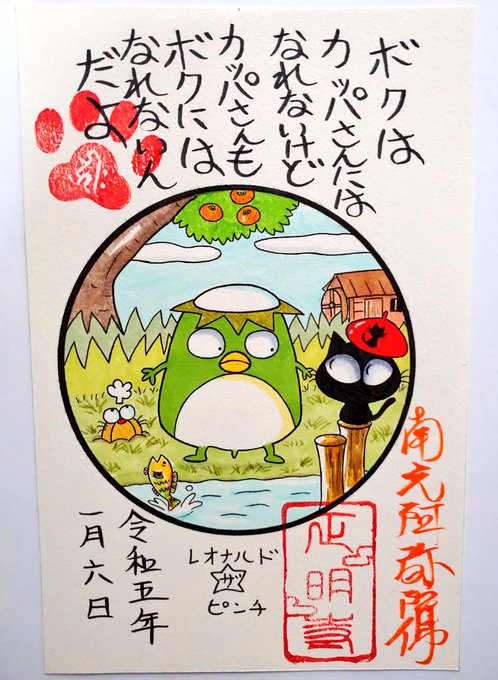 ボクは
カッパさんには
なれないけど
カッパさんも
ボクには
なれないん
だよ
南无阿弥陀佛
レオナルド
ザ
ピンチ
令和五年
一月六日